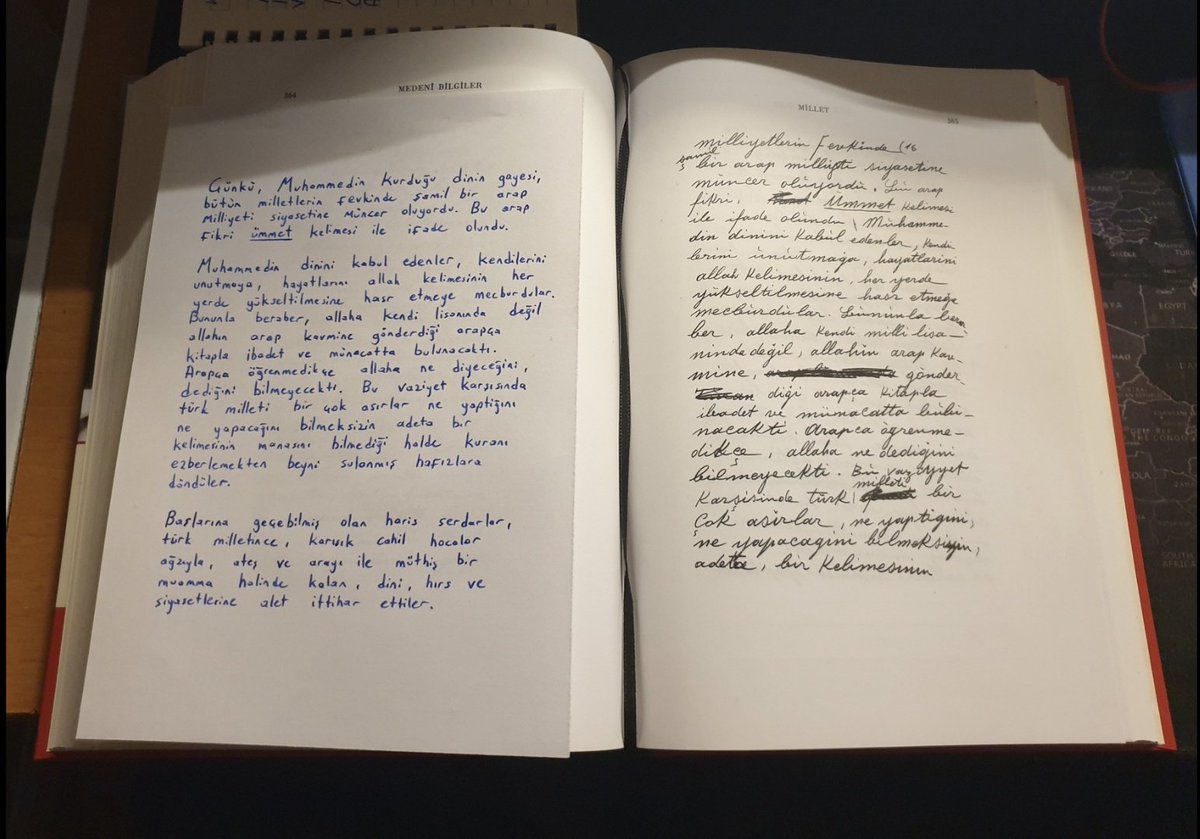 364
MEDENÎ BİLGİLER
Günkü, Muhammedin kurduğu dinin gayesi,
bütün milletlerin fevkinde şamil bir arap
milliyeti siyasetine müncer oluyordu. Bu arap
fikri ümmet kelimesi ile ifade olundu.
Muhammedin dinini kabul edenler, kendilerini
unutmaya, hayatlarını allah kelimesinin her
yerde yükseltilmesine hasr etmeye mecburdular.
Bununla beraber, allaha kendi lisanında değil
allahın arap kavmine gönderdiği arapça
kitapla ibadet ve münacatta bulunacaktı.
Arapça öğrenmedikçe allaha ne diyeceğini,
dediğini bilmeyecekti. Bu vaziyet karşısında
türk milleti bir çok asırlar ne yaptığını
ne yapacağını bilmeksizin adeta bir
kelimesinin manasını bilmediği halde kuranı
ezberlemekten beyni sulanmış hafızlara
döndüler.
Başlarına geçebilmiş olan haris serdarlar,
türk milletince, karışık cahil hocalar
ağzıyla, ateş ve arayı ile müthiş bir
muamma halinde kalan, dini, hırs ve
siyasetlerine alet ittihar ettiler.
MİLLET
365
milliyetlerin fevkinde (16
şamil bir arap milliyeti siyasetine
müncer oluyordu. Bu arap
fikri, Ummet kelimesi
ile ifade olundu \ Muhamme-
din dinini kabul edenler, kendi
lerini unutmağa, hayatlarını
allah kelimesinin, her yerde
yükseltilmesine hasr etmeğe
mecburdular. Bununla bera
ber, allaha kendi milli lisa-
nında değil, allahın arap kav-
mine, gönder
diği arapça kitapla
ibadet ve münacatta bulu-
nacaktı. Arapça öğrenme-
dikçe, allaha ne dediğini
bilmeyecekti. Bu vaziyyet
karşisinda türk milleti bir
çok asirlar, ne yaptiğini,
ne yapacaģini bilmeksiyin,
adeta, bir kelimesinin
EGYPT
SOUTH
AFRICA